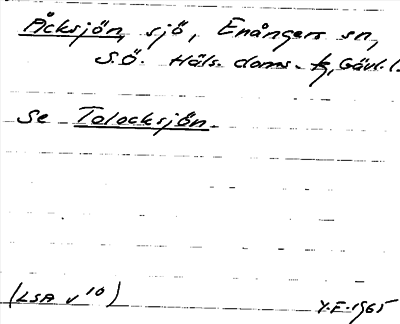 Åcksjön, sjö, Enångers sn,
S.Ö. Häls. doms. tg, Gävl. l.
Se Tolocksjön.
(LSA v 10)
Y.F. 1965